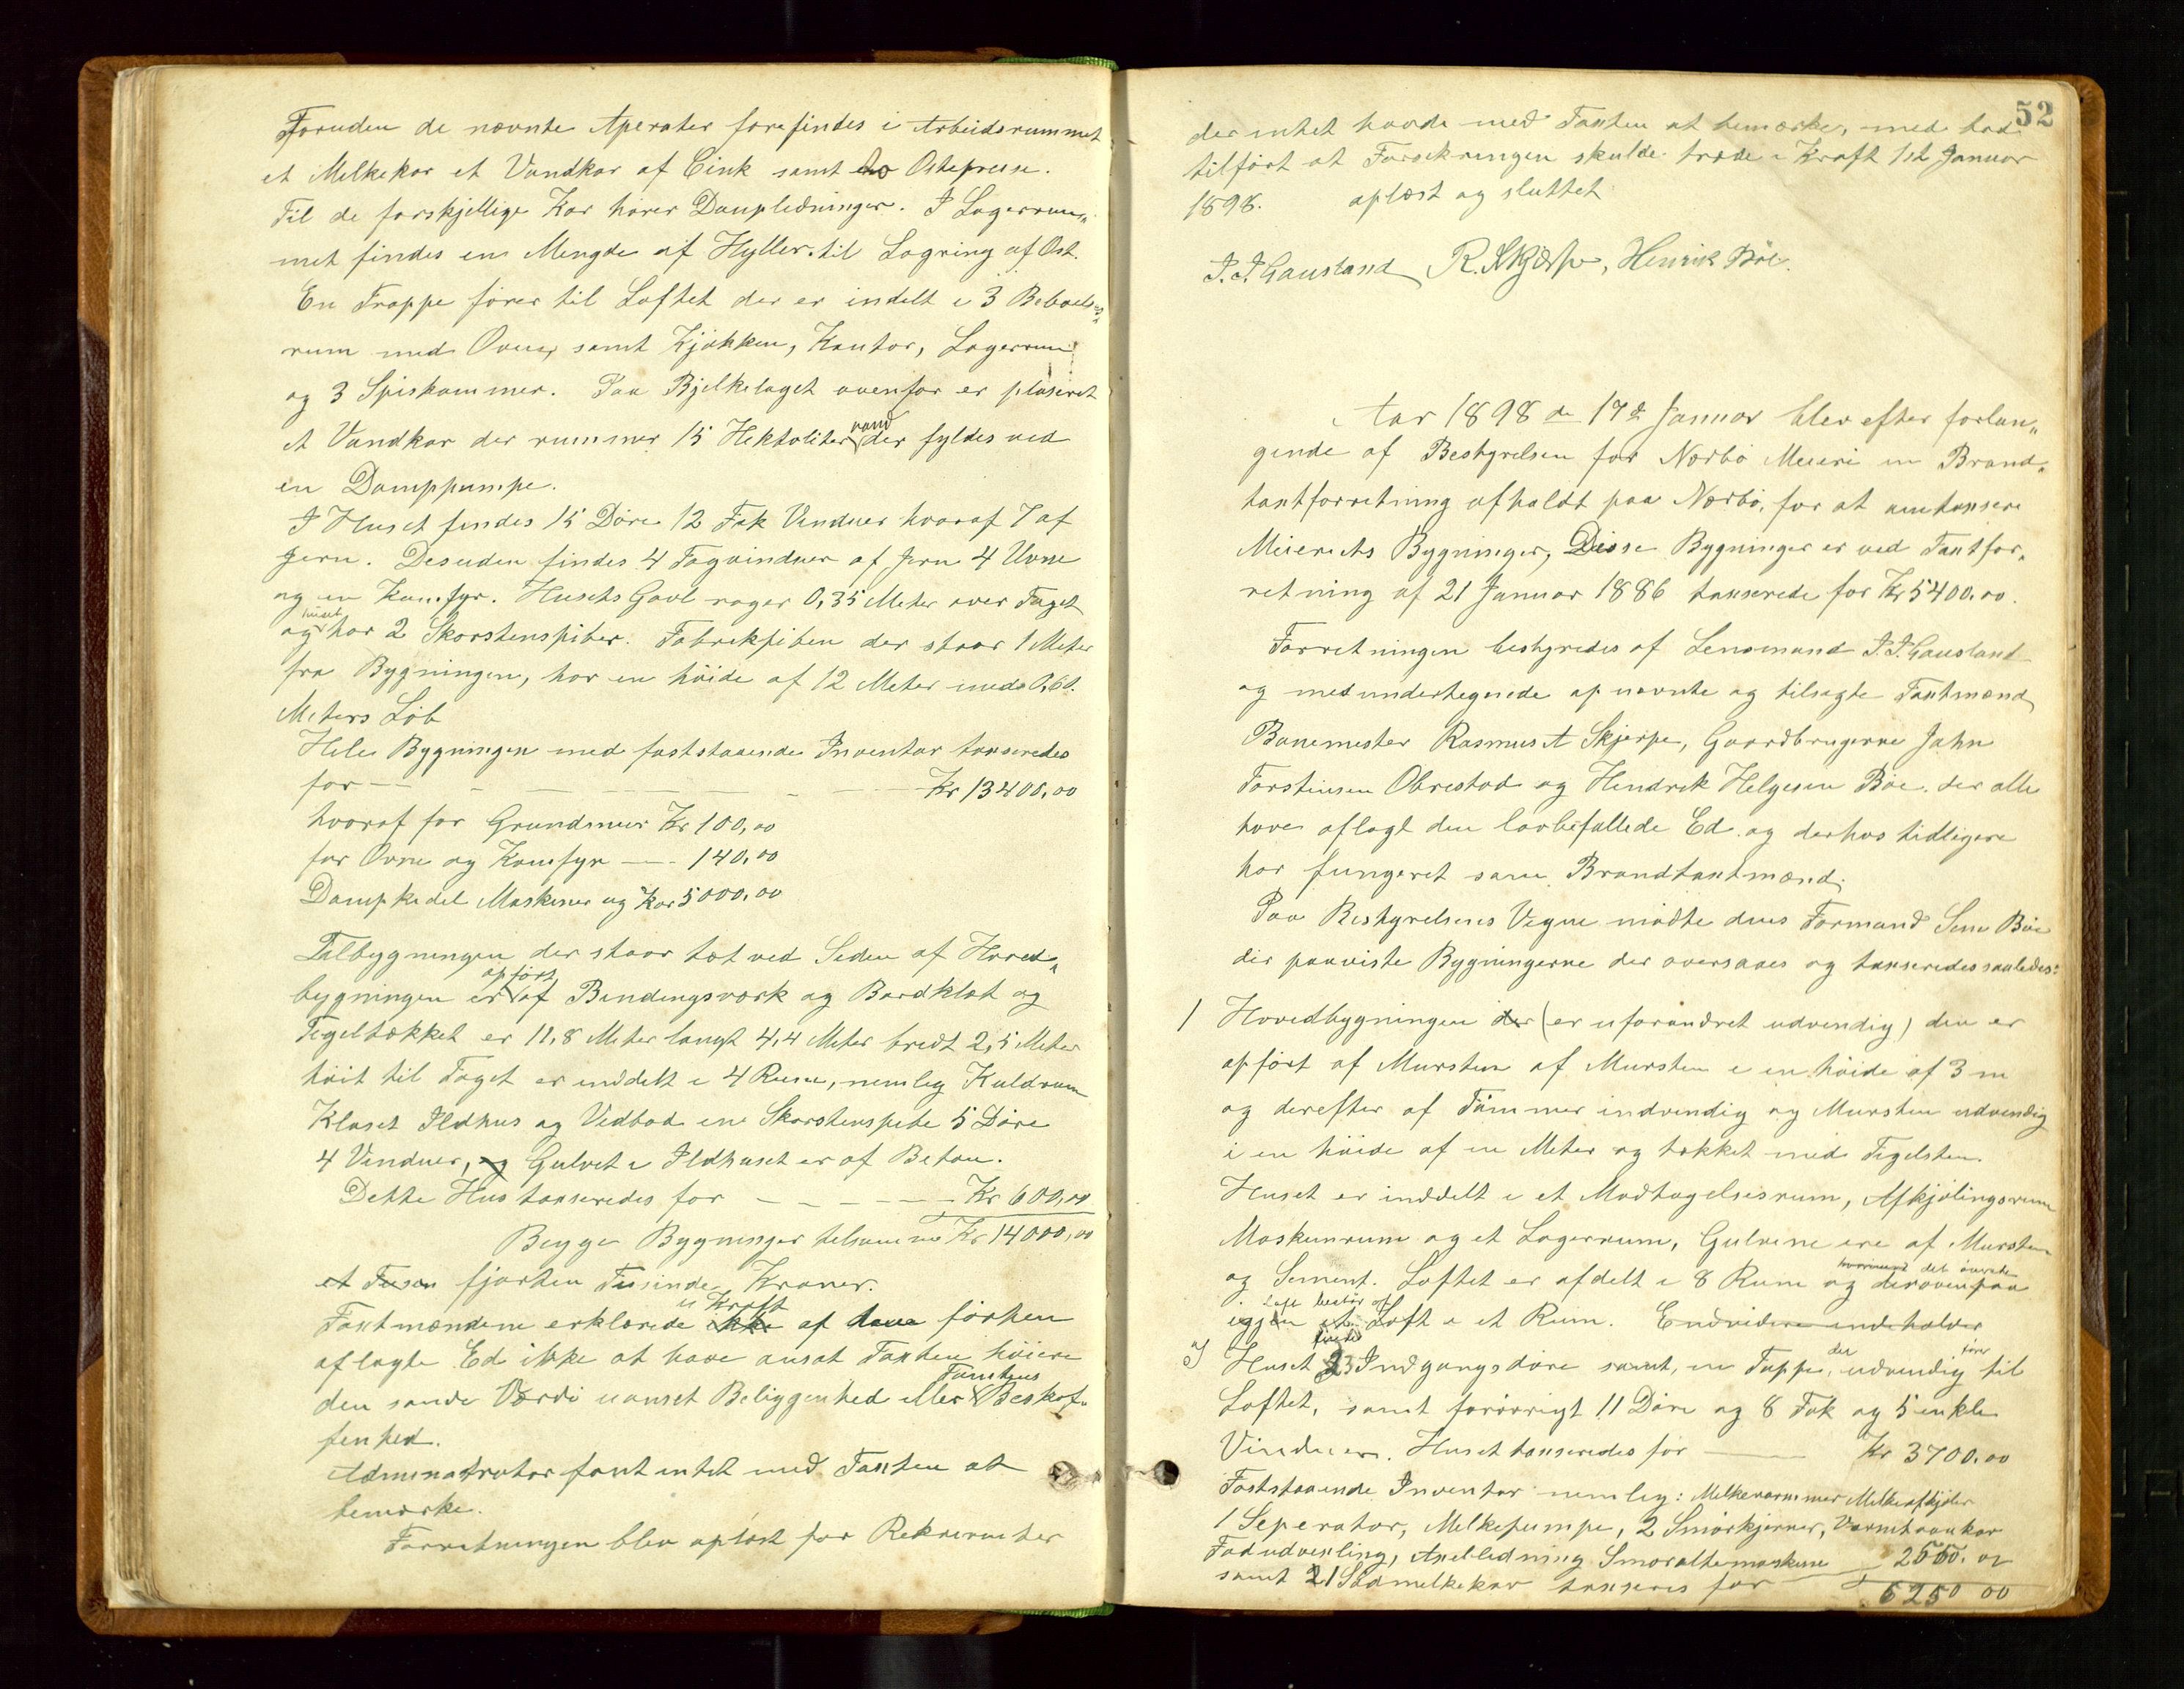 Foruden de nævnte Aperater forefindes i Arbeidsrummet
et Melkekar et Vandkar af Cink samt to Ostepresse.
Til de forskjellige Kar hører Dampledninger. I Lagerrum„
met findes en Mengde af Hyller til Lagring af Ost.
En Trappe fører til Loftet der er indelt i 3 Beboels„
rum med Ovne, samt Kjøkken, Kontor, Lagerrum
og 3 Spiskammer. Paa Bjelkelaget ovenfor er plaseret
et Vandkar der rummer 15 Hektoliter vand der fyldes ved
en Damppumpe.
I Huset findes 15 Døre 12 Fak Vinduer hvoraf 7 af
Jern. Desuden findes 4 Tagvinduer af Jern 4 Ovne
og en Komfyr. Husets Gavl rager 0,35 Meter over Taget
og huset har 2 Skorstenspiber. Fabrikpiben der staar 1 Meter
fra Bygningen, har en høide af 12 Meter med 0,60.
Meters Løb
Hele Bygningen med faststaaende Inventar taxeredes
for — — — — — — Kr 13400,00
hvoraf for Grundmur Kr 100,00
for Ovne og Komfyr — - 140,00
Dampkedel Maskiner og Kar 5000,00
Tilbygningen der staar tæt ved Siden af Hoved„
bygningen er opført af Bindingsværk og Bordklæt og
Tegeltækket er 11,8 Meter langt 4,4 Meter bredt 2,5 Meter
høit til Taget er inddelt i 4 Rum, nemlig Kuldrum
Kloset Ildhus og Vedbod en Skorstenspibe 5 Døre
4 Vinduer, og Gulvet i Ildhuset er af Beton.
Dette Hus taxeredes for — — — — Kr 600,00
Begge Bygninger tilsamme Kr 14000,00
et Tusen fjorten Tusinde Kroner.
Taxtmændene erklærede i Kraft ikke af have førhen
aflagte Ed ikke at have ansat Taxten høiere
den sande Værdi uanset Beliggenhed eller Tomtens Beskaf„
fenhed.
Administrator fant intet med Taxten at
bemærke.
Forretningen blev oplæst for Rekvirenter
52
der intet havde med Taxten at bemærke, med bad
tilført at Forsikringen skulde træde i Kraft 1st Januar
1898. oplæst og sluttet
J. J. Gausland R. Skjærpe, Henrik Bøe.
Aar 1898 den 17de Januar blev efter forlan„
gende af Bestyrelsen for Nærbø Meieri en Brand„
taxtforretning afholdt paa Nærbø, for at omtaxere
Meieriets Bygninger, Disse Bygninger er ved Taxtfor„
retning af 21 Januar 1886 taxerede for Kr 5400,00.
Forretningen bestyredes af Lensmand J. J. Gausland
og medundertegnede opnævnte og tilsagte Taxtmænd
Banemester Rasmus A Skjerpe, Gaardbrugerne Jahn
Torstensen Obrestad og Hendrik Helgesen Bøe. der alle
have aflagt den lovbefallede Ed og derhos tidligere
har fungeret som Brandtaxtmænd.
Paa Bestyrelsens Vegne mødte dens Formand Sem Bøe
der paaviste Bygningerne der oversaaes og taxeredes saaledes:
1 Hovedbygningen der (er uforandret udvendig) den er
opført af Mursten af Mursten i en høide af 3 m
og derefter af Tømmer indvendig og Mursten udvendig
i en høide af en Meter og tækket med Tegelsten.
Huset er inddelt i et Modtagelsesrum, Afkjølingsrum
Maskinrum og et Lagerrum, Gulvene ere af Mursten
og Sement. Loftet er afdelt i 8 Rum og hvorimod det øverste derovenpaa
igjen et Loft består af Loft i et Rum. Endvidere indeholder
I Huset findes 23 Indgangsdøre samt en Tappe, der udvendig fører til
Loftet, samt forøvrigt 11 Døre og 8 Fak og 5 enkle
Vinduer. Huset taxeredes for — Kr 3700,00
Faststaaende Inventar nemlig: Melkevarmmer Melkeafkjøler
1 Seperator, Melkepumpe, 2 Smørkjerner, Varmtvankar
Fadudvexling, Axelledning Smøraltemaskine
samt 21 Sødmelkekar taxeres for 2550. 00
6250 00